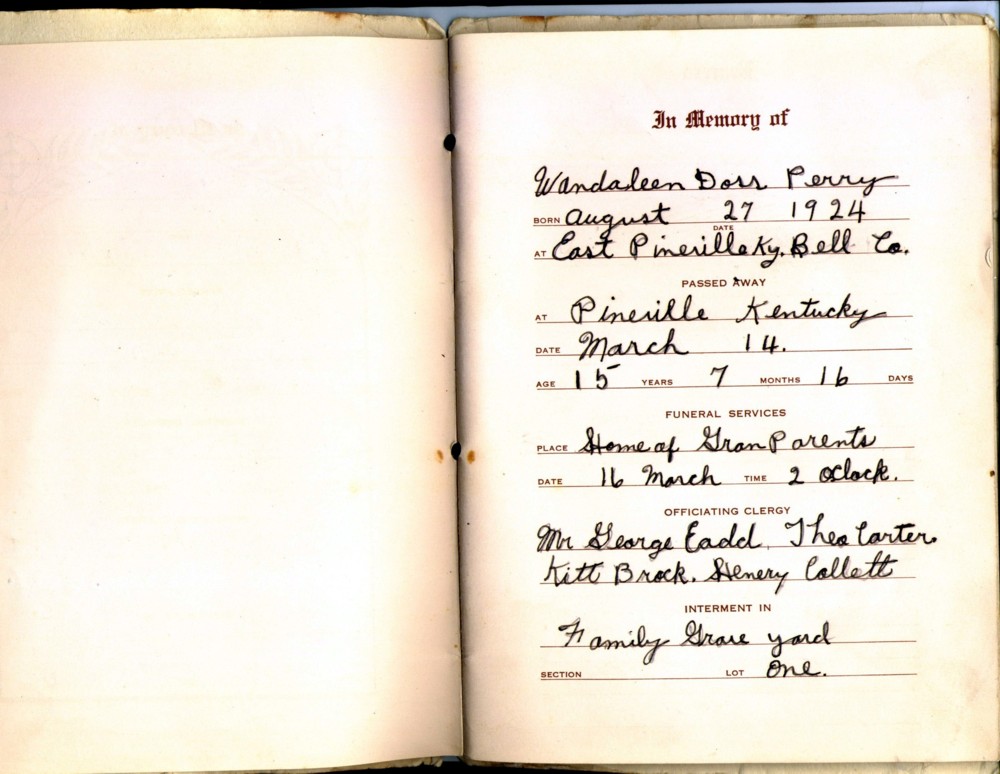 In Memory of
Wandaleen Doss Perry
BORN August 27 1924
DATE
AT East Pineville Ky. Bell Co.
PASSED AWAY
AT Pineville Kentucky
DATE March 14.
AGE 15 YEARS 7 MONTHS 16 DAYS
FUNERAL SERVICES
PLACE Home of GranParents
DATE 16 March TIME 2 oclock.
OFFICIATING CLERGY
Mr George Eadd, Theo Carter.
Kitt Brock. Henery Collett
INTERMENT IN
Family Grave yard
SECTION LOT One.